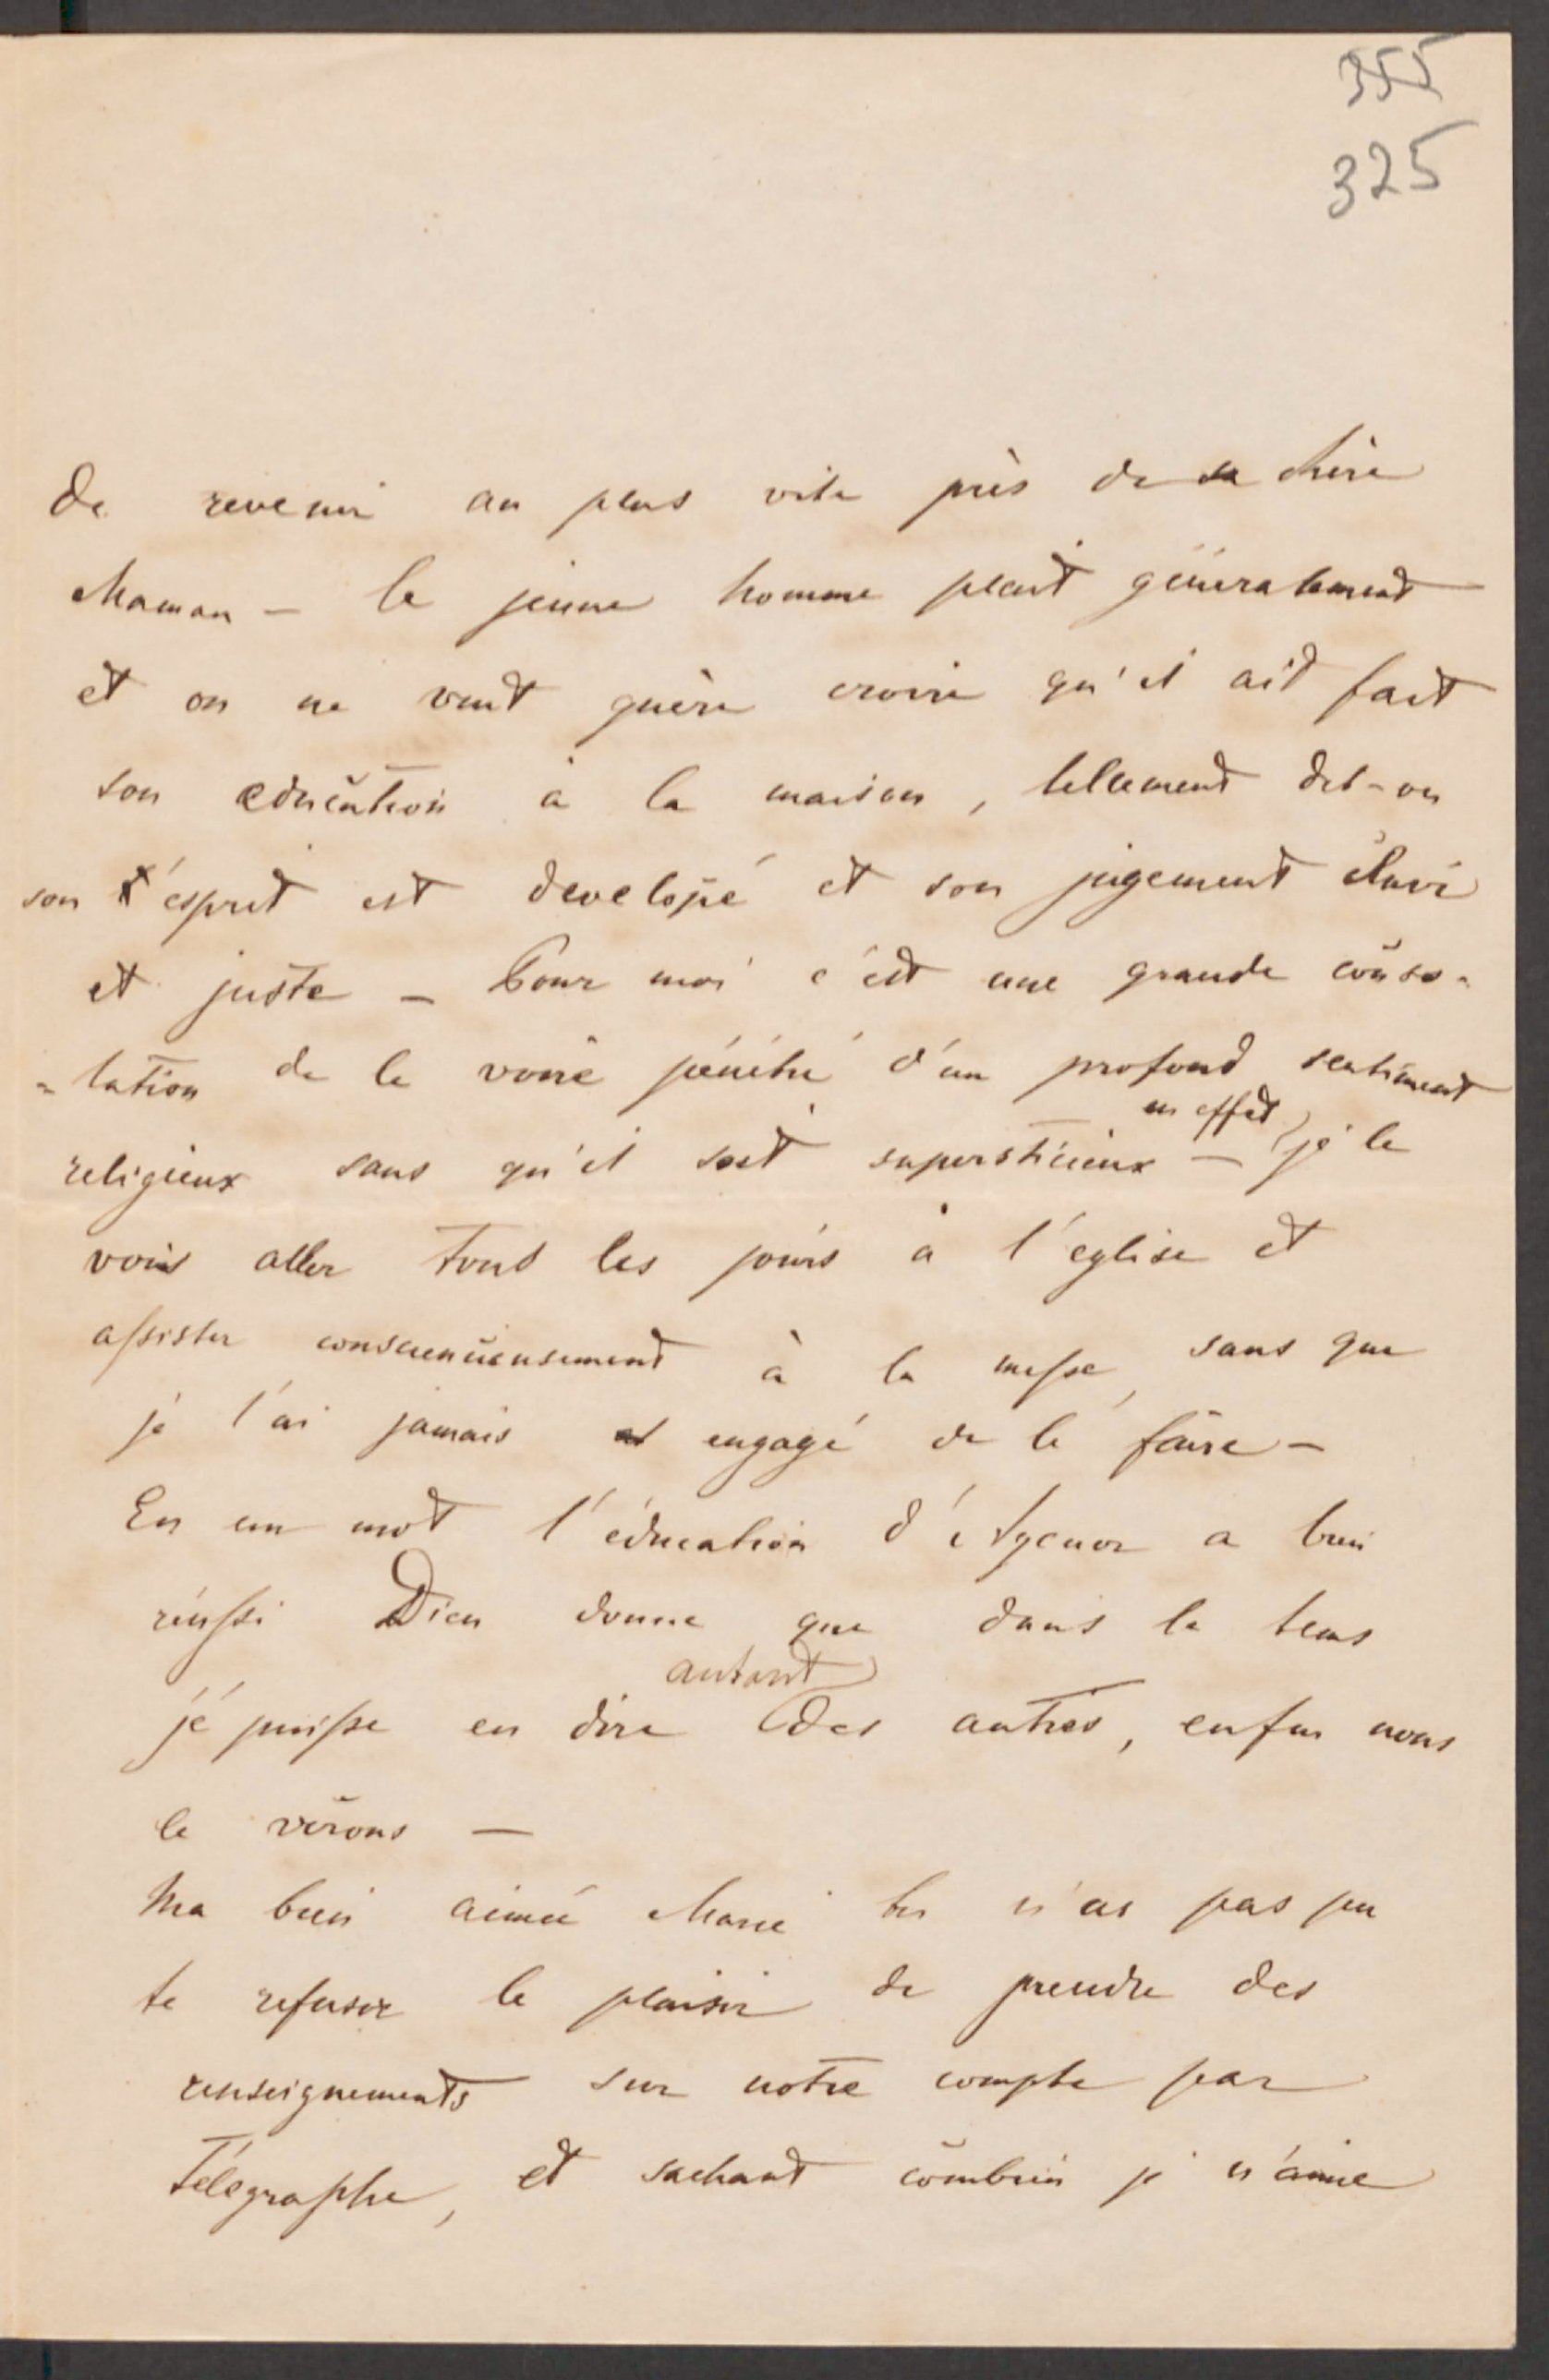 355
325
de revenir au plus vite près de sa chère
Maman – le jeune homme plait généralement
et on ne veut guère croire qu'il ait fait
son education à la maison, tellement dit-on
son ésprit est developé et son jugement
et juste – Pour moi c'est une grande conso-
-lation de le voire pénétré d'un profond sentiment
religieux sans qu'il soit supersticieux – en effet je le
vois aller tous les jours à l'eglise et
assister conscencieusement à la messe, sans que
je l'ai jamais engagé de le faire –
En un mot l'éducation d'Agenor a bien
réussi Dieu donne que dans le tems
je puisse en dire autant des autres, enfin nous
le vérons –
Ma bien aimée Marie tu n'as pas pu
te refuser le plaisir de prendre des
renseignements sur notre compte par
Télégraphe, et sachant combien je n'aime